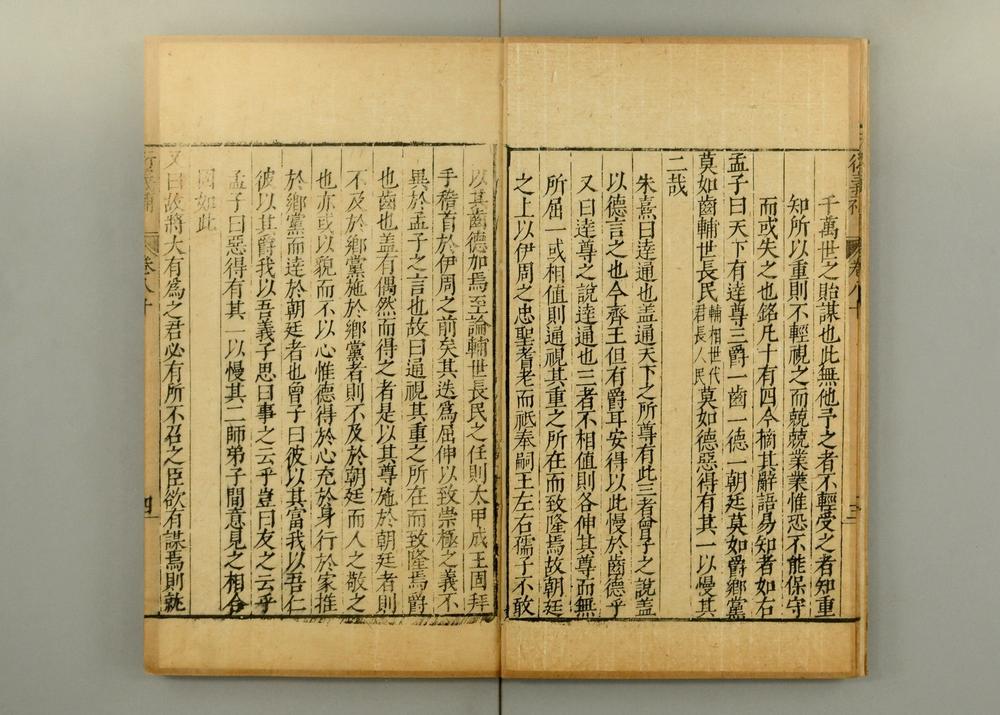 千萬世之貽謀也此無他予之者不輕受之者知重
知所以重則不輕視之而兢兢業業惟恐不能保守
而或失之也銘凡十有四今摘其辭語易知者如右
孟子曰天下有逹尊三爵一齒一德一朝廷莫如爵鄉黨
莫如齒輔世長民輔相世代君長人民莫如德惡得有其一以慢其
二哉
朱熹曰逹通也盖通天下之所尊有此三者曾子之說盖
以德言之也今齊王但有爵耳安得以此慢於齒德乎
又曰逹尊之說逹通也三者不相值則各伸其尊而無
所屈一或相值則通視其重之所在而致隆焉故朝廷
之上以伊周之忠聖耆老而祗奉嗣王左右孺子不敢
以其齒德加焉至論輔世長民之任則太甲成王固拜
手稽首於伊周之前矣其迭爲屈伸以致崇極之義不
異於孟子之言也故曰通視其重之所在而致隆焉爵
也齒也盖有偶然而得之者是以其尊施於朝廷者則
不及於鄉黨施於鄉黨者則不及於朝廷而人之敬之
也亦或以貌而不以心惟德得於心充於身行於家推
於鄉黨而逹於朝廷者也曾子曰彼以其富我以吾仁
彼以其爵我以吾義子思曰事之云乎豈曰友之云乎
孟子曰惡得有其一以慢其二師弟子間意見之相合
固如此
又曰故將大有爲之君必有所不召之臣欲有謀焉則就
卷八十
四